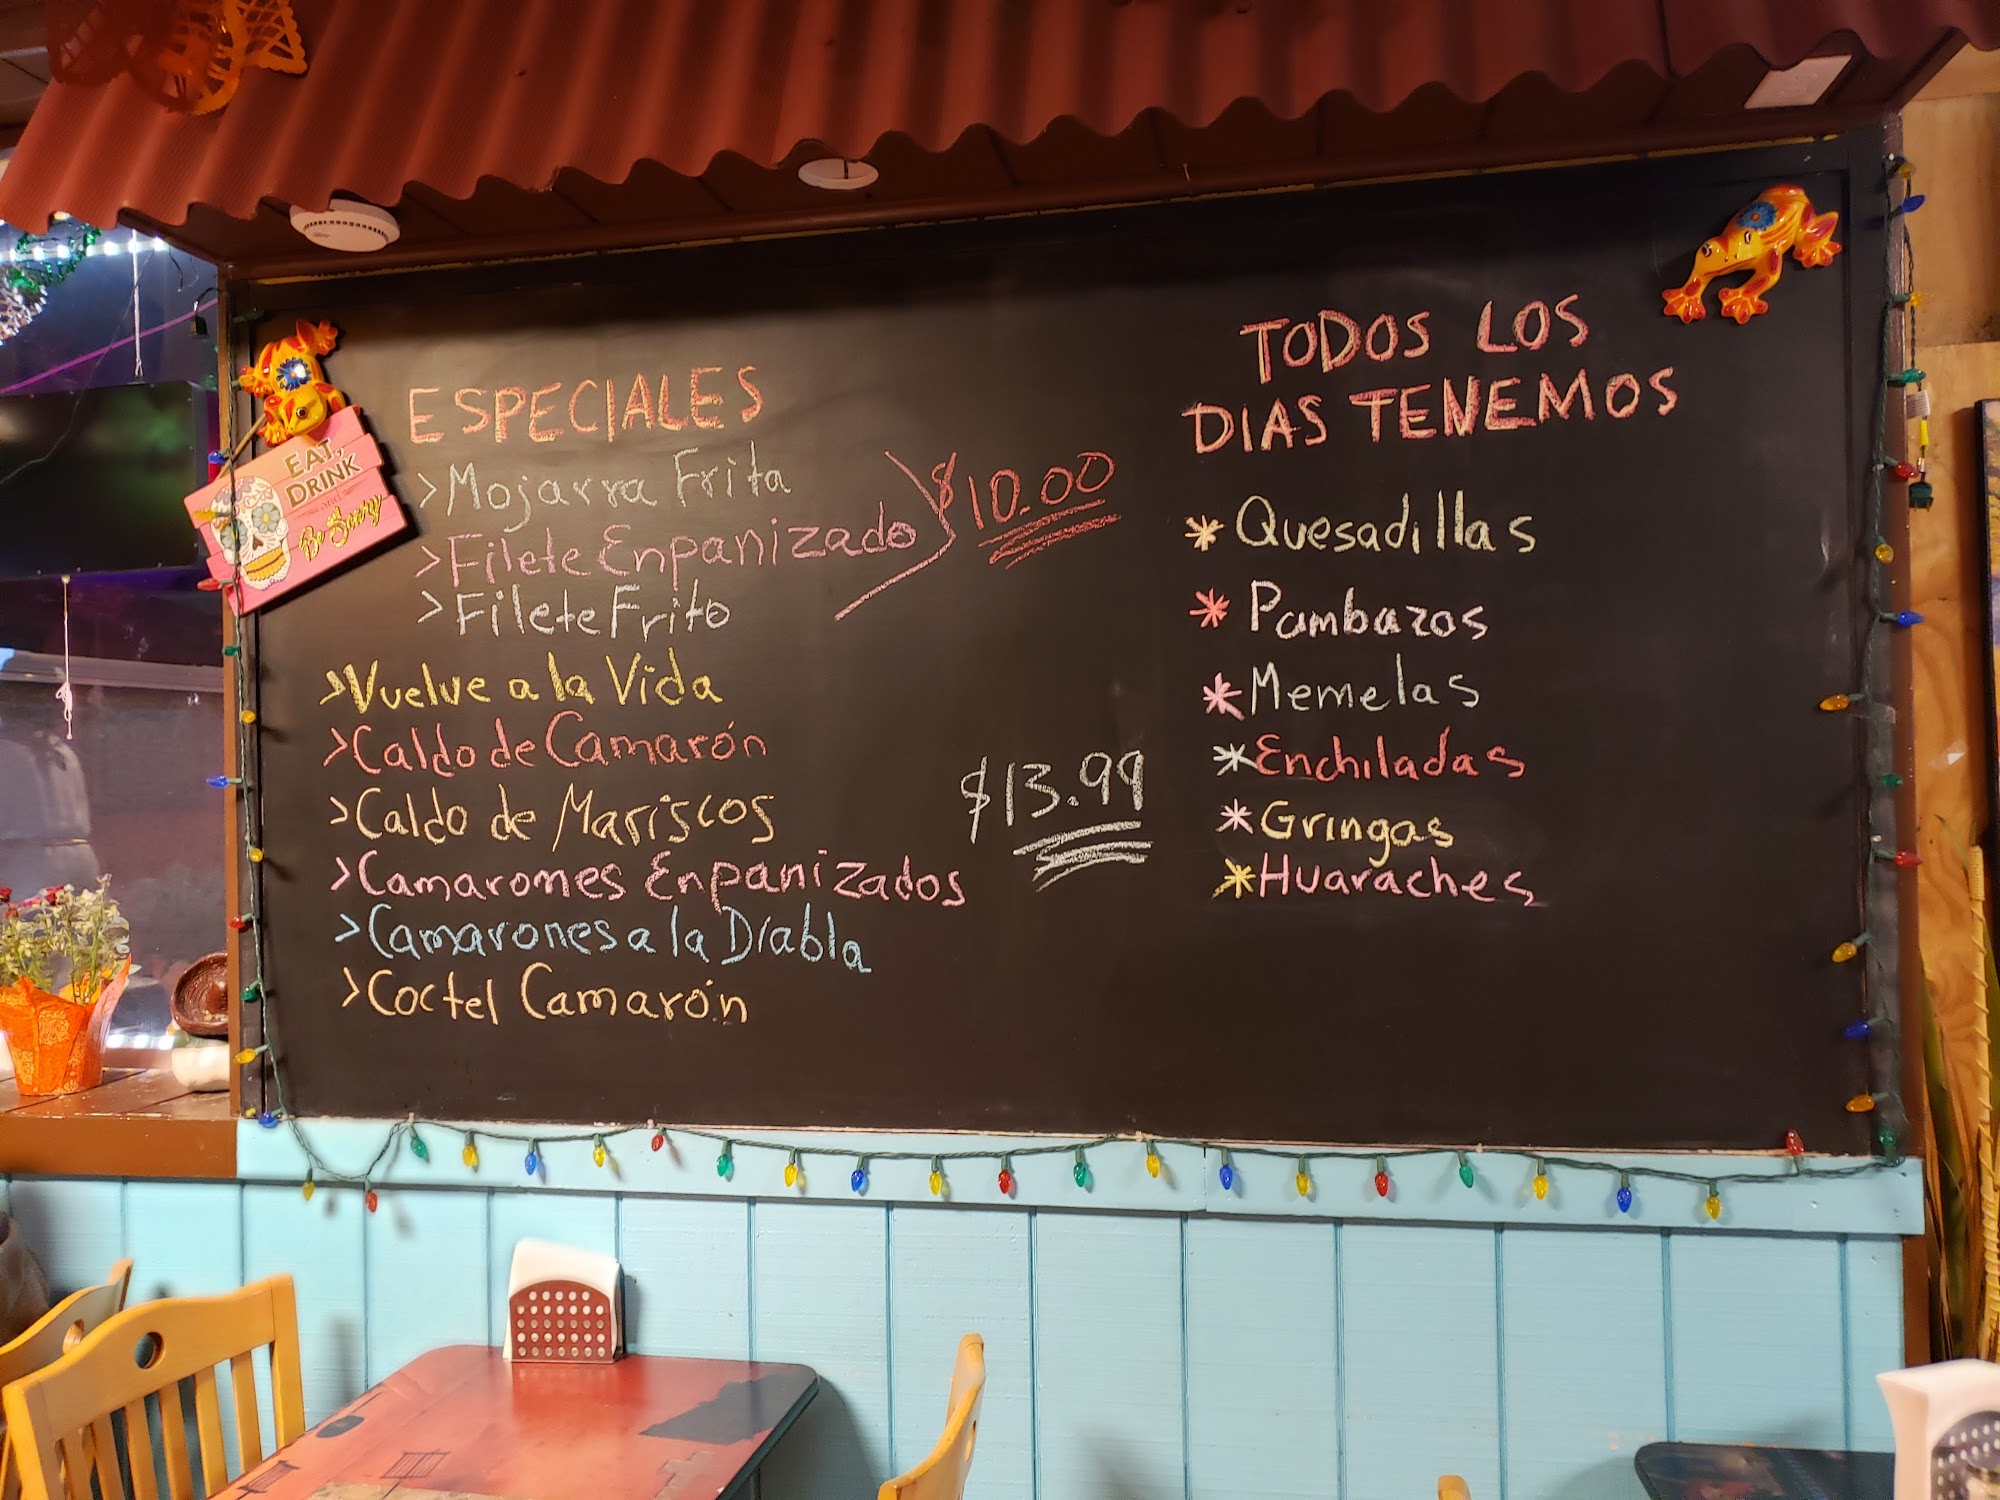 EAT,
DRINK
and
Be Scary
ESPECIALES
>Mojarra Frita
>Filete Enpanizado
>Filete Frito
$10.00
>Vuelve a la Vida
>Caldo de Camarón
>Caldo de Mariscos
>Camarones Enpanizados
>Camarones a la Díabla
>Coctel Camarón
$13.99
TODOS LOS
DIAS TENEMOS
* Quesadillas
* Pambazos
* Memelas
* Enchiladas
* Gringas
* Huaraches